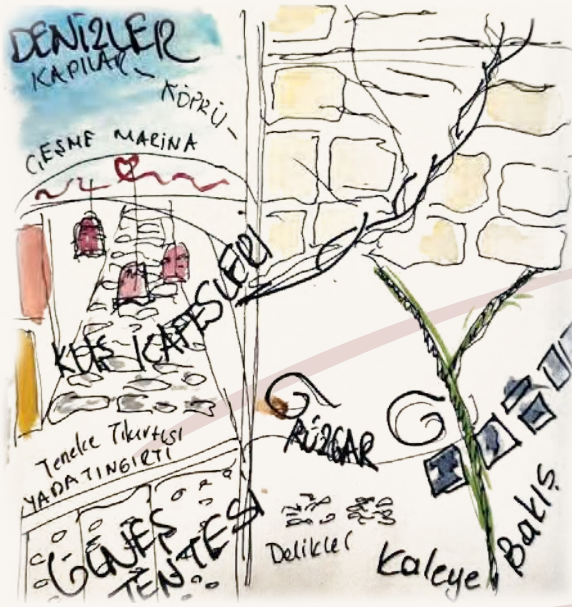 DENİZLER
KAPILAR - KÖPRÜ -
ÇEŞME MARİNA
KUŞ KAFESLERİ
Teneke Tıkırtısı
YADA TINGIRTI
GÜNEŞ
TENTESİ
RÜZGAR
Delikler
Kaleye Bakış